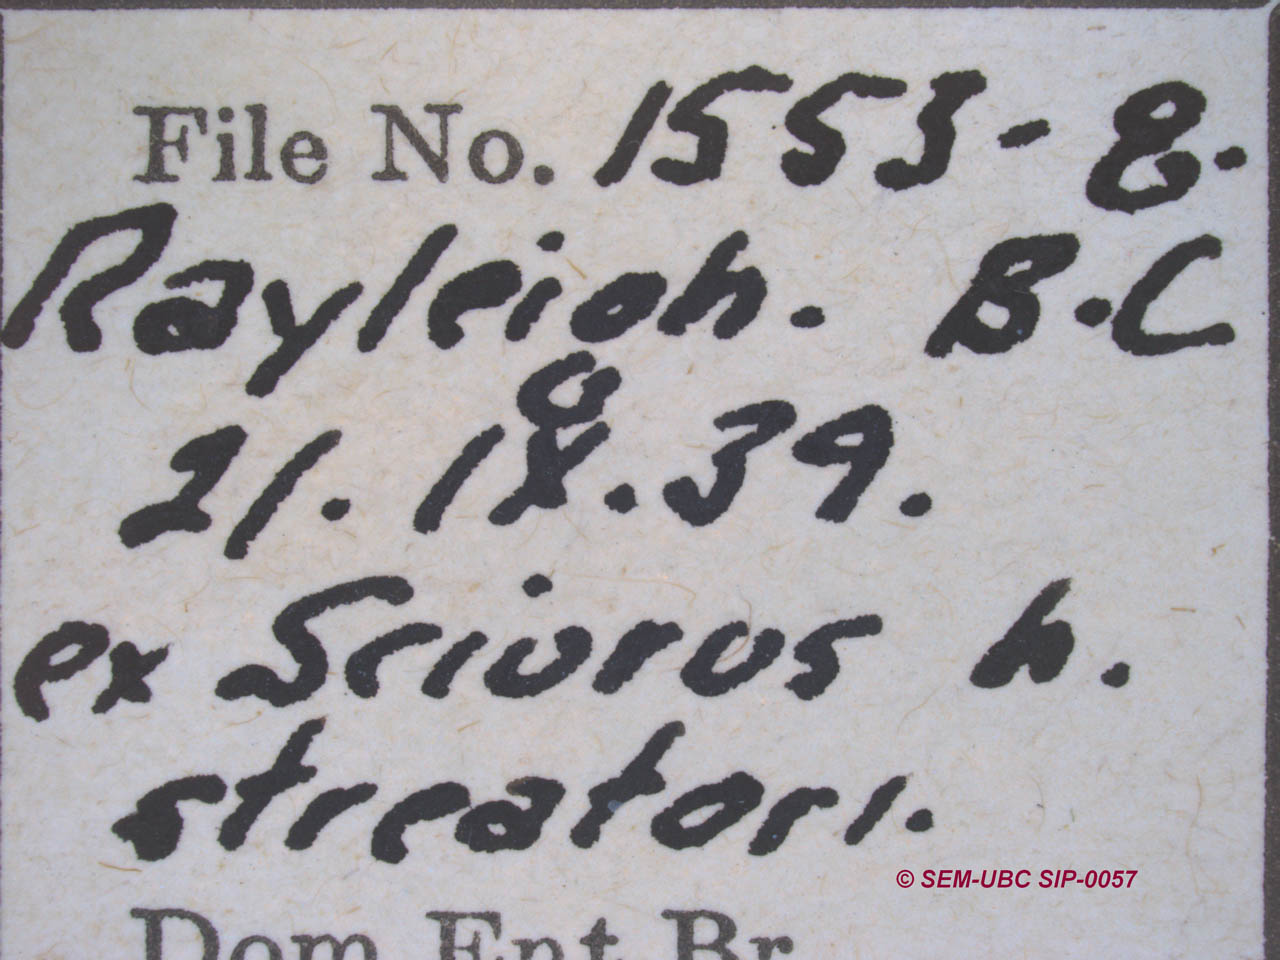 File No. 1553-8.
Rayleigh. B.C
21. 18. 39.
ex Sciurus h.
streatori.
© SEM-UBC SIP-0057
Dom. Ent. Br.